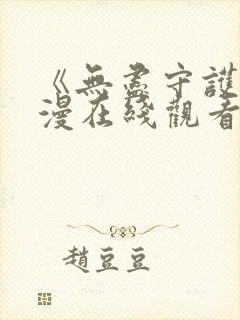 《無盡守護
漫在綫觀看
趙豆豆